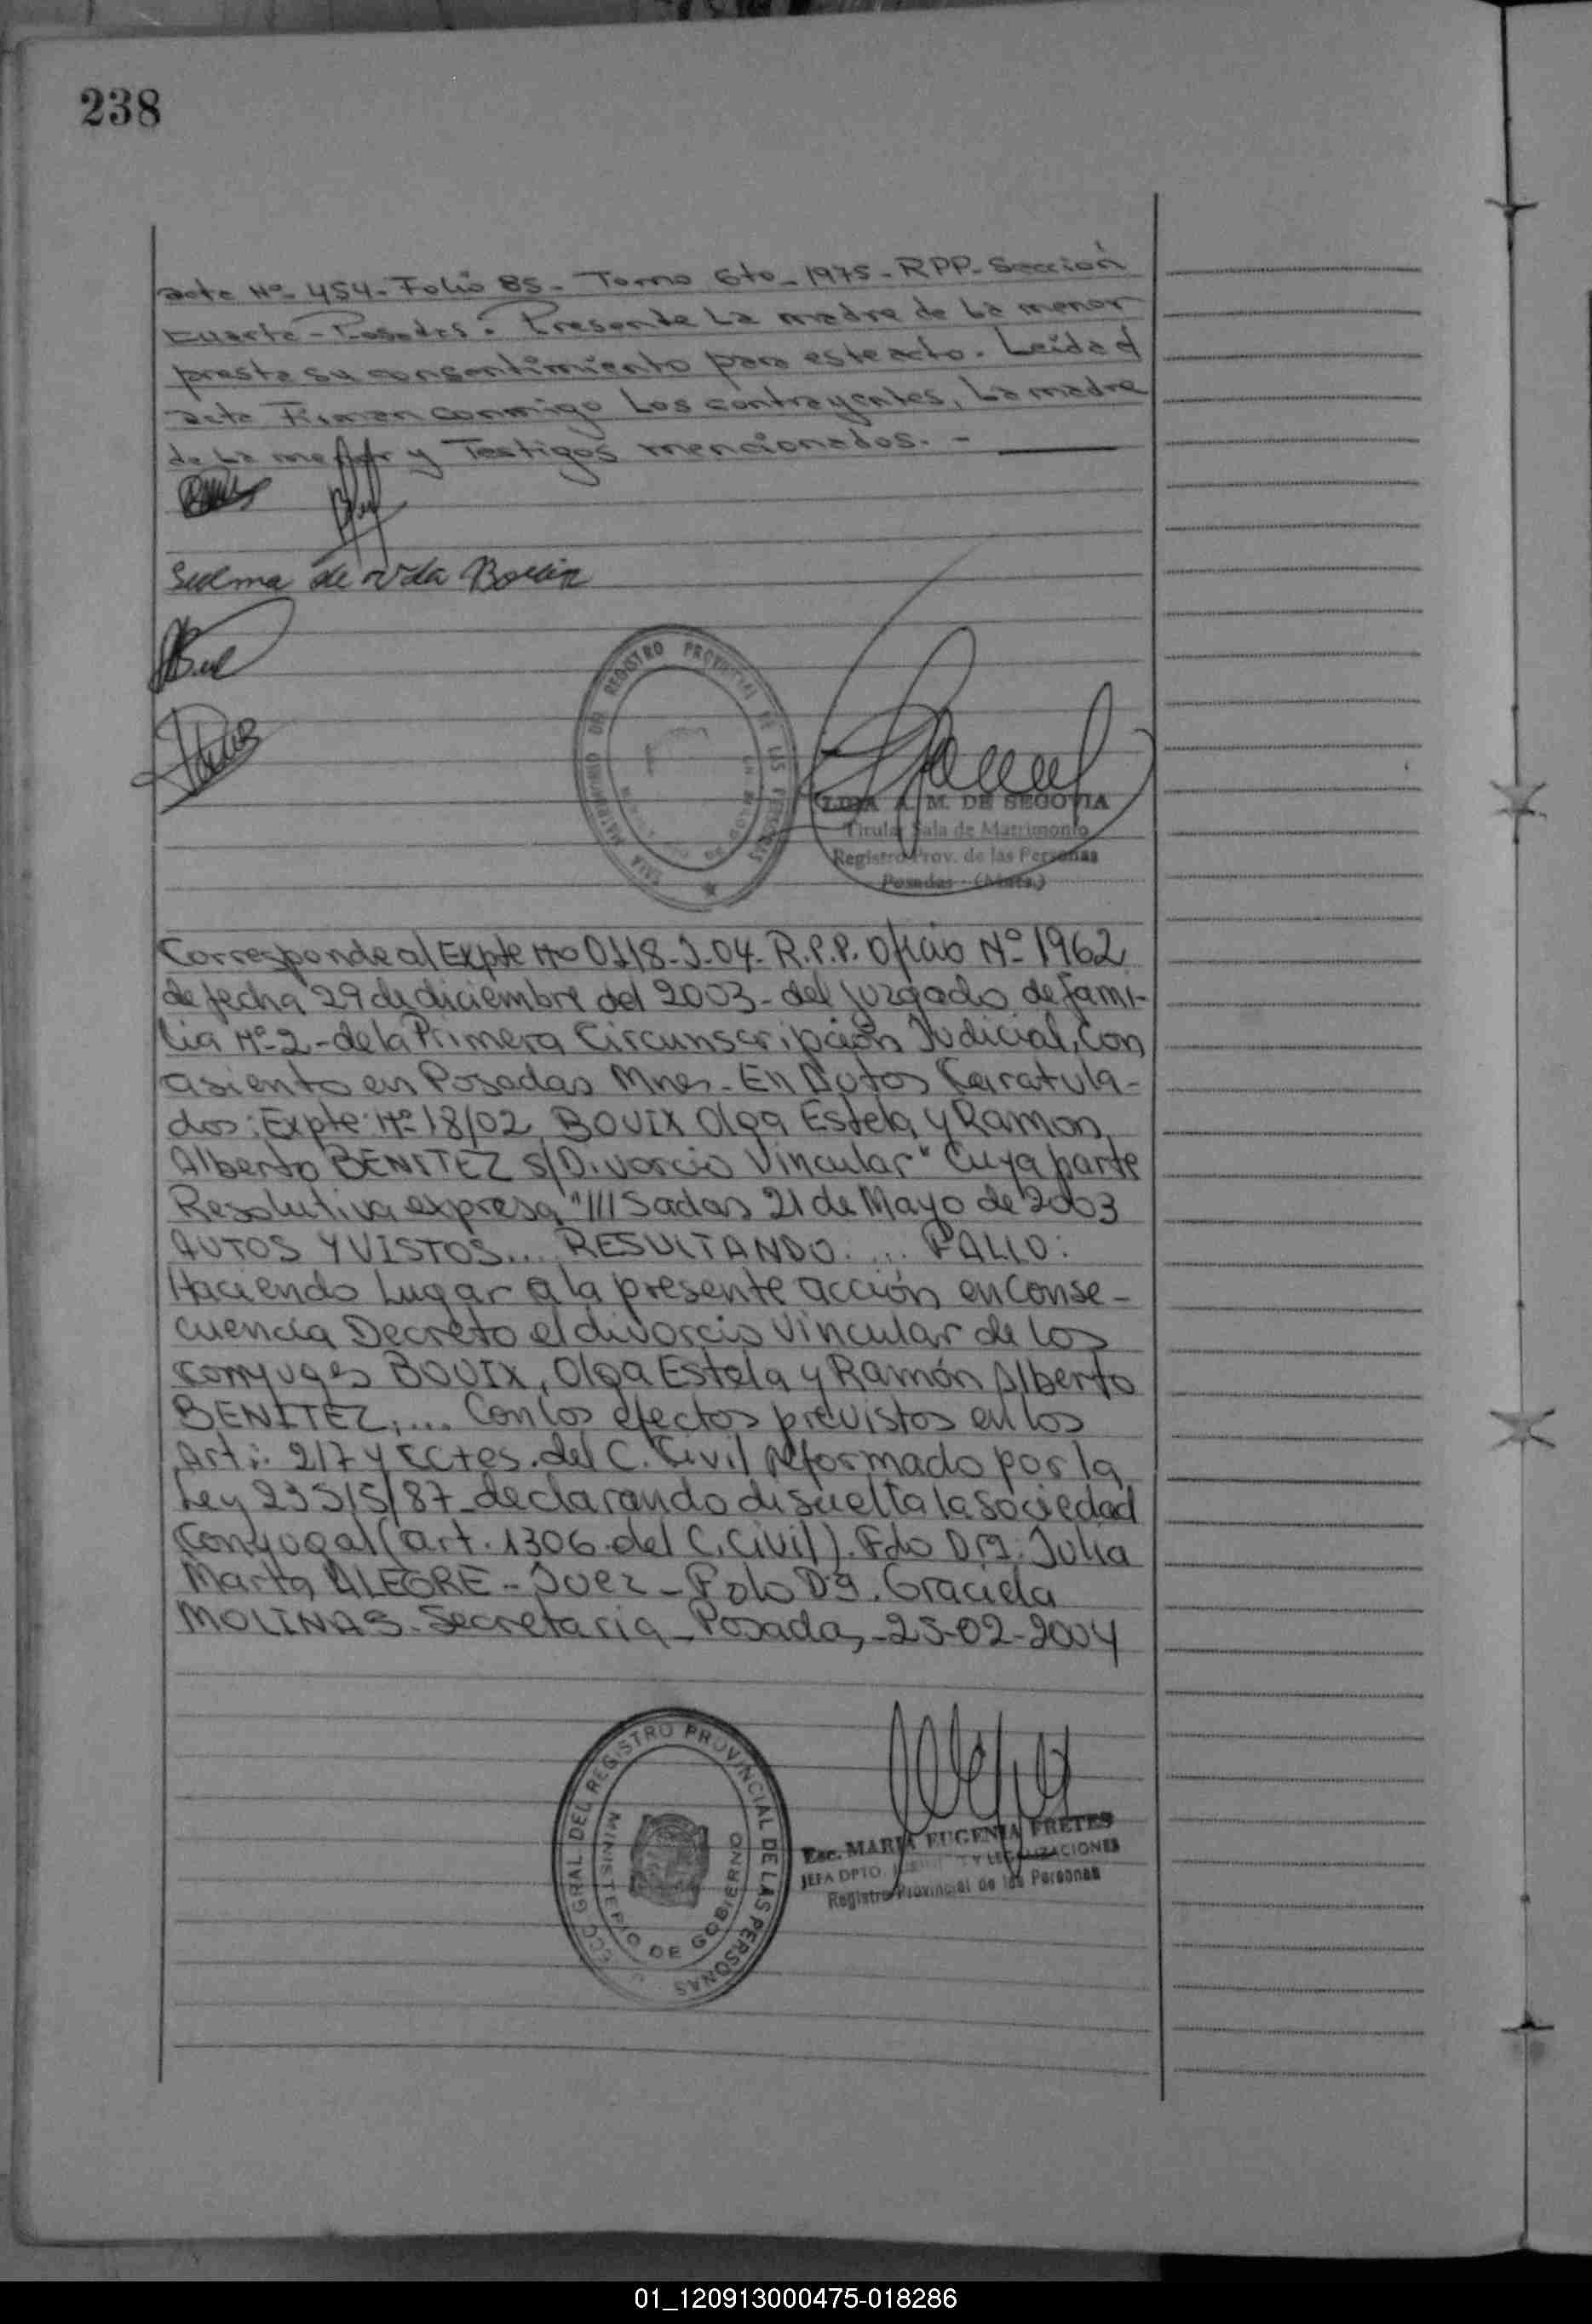 238
acta Nº 454- Folio 85- Tomo 6to- 1975- RPP- Sección
Cuarta- Posadas. Presente La madre de La menor
presta su consentimiento para este acto. Leída el
acta Firman conmigo Los contrayentes, La madre
de La menor y Testigos mencionados. -
Selma de Vda Bouix
SALA MATRIMONIO DEL REGISTRO PROVINCIAL DE LAS PERSONAS
LIDIA A. M. DE SEGOVIA
Titular Sala de Matrimonio
Registro Prov. de las Personas
Posadas (Mnes.)
Corresponde al Expte Nro 0118-J-04- R.P.P. Oficio Nº 1962
de fecha 29 de diciembre del 2003- del Juzgado de fami-
lia Nº 2- de la Primera Circunscripción Judicial, Con
asiento en Posadas Mnes- En Autos Caratula-
dos: Expte Nº 18/02 BOUIX Olga Estela y Ramon
Alberto BENITEZ s/Divorcio Vincular" Cuya parte
Resolutiva expresa "///Sadas 21 de Mayo de 2003
AUTOS Y VISTOS... RESULTANDO.... FALLO:
Haciendo Lugar a la presente acción en Conse-
cuencia Decreto el divorcio Vincular de los
Conyuges BOUIX, Olga Estela y Ramón Alberto
BENITEZ;... Con los efectos previstos en los
Art.: 217 y CCtes. del C. Civil Reformado por la
Ley 23515/87- declarando disuelta la Sociedad
Conyugal (art. 1306 del C. Civil). Fdo Dra. Julia
Marta ALEGRE- Juez- Fdo Dra. Graciela
MOLINAS- Secretaria- Posadas, -25-02-2004
GRAL. DEL REGISTRO PROVINCIAL DE LAS PERSONAS
MINISTERIO DE GOBIERNO
Esc. MARIA EUGENIA FRETES
JEFA DPTO. Y LEGALIZACIONES
Registro Provincial de las Personas
01_120913000475-018286